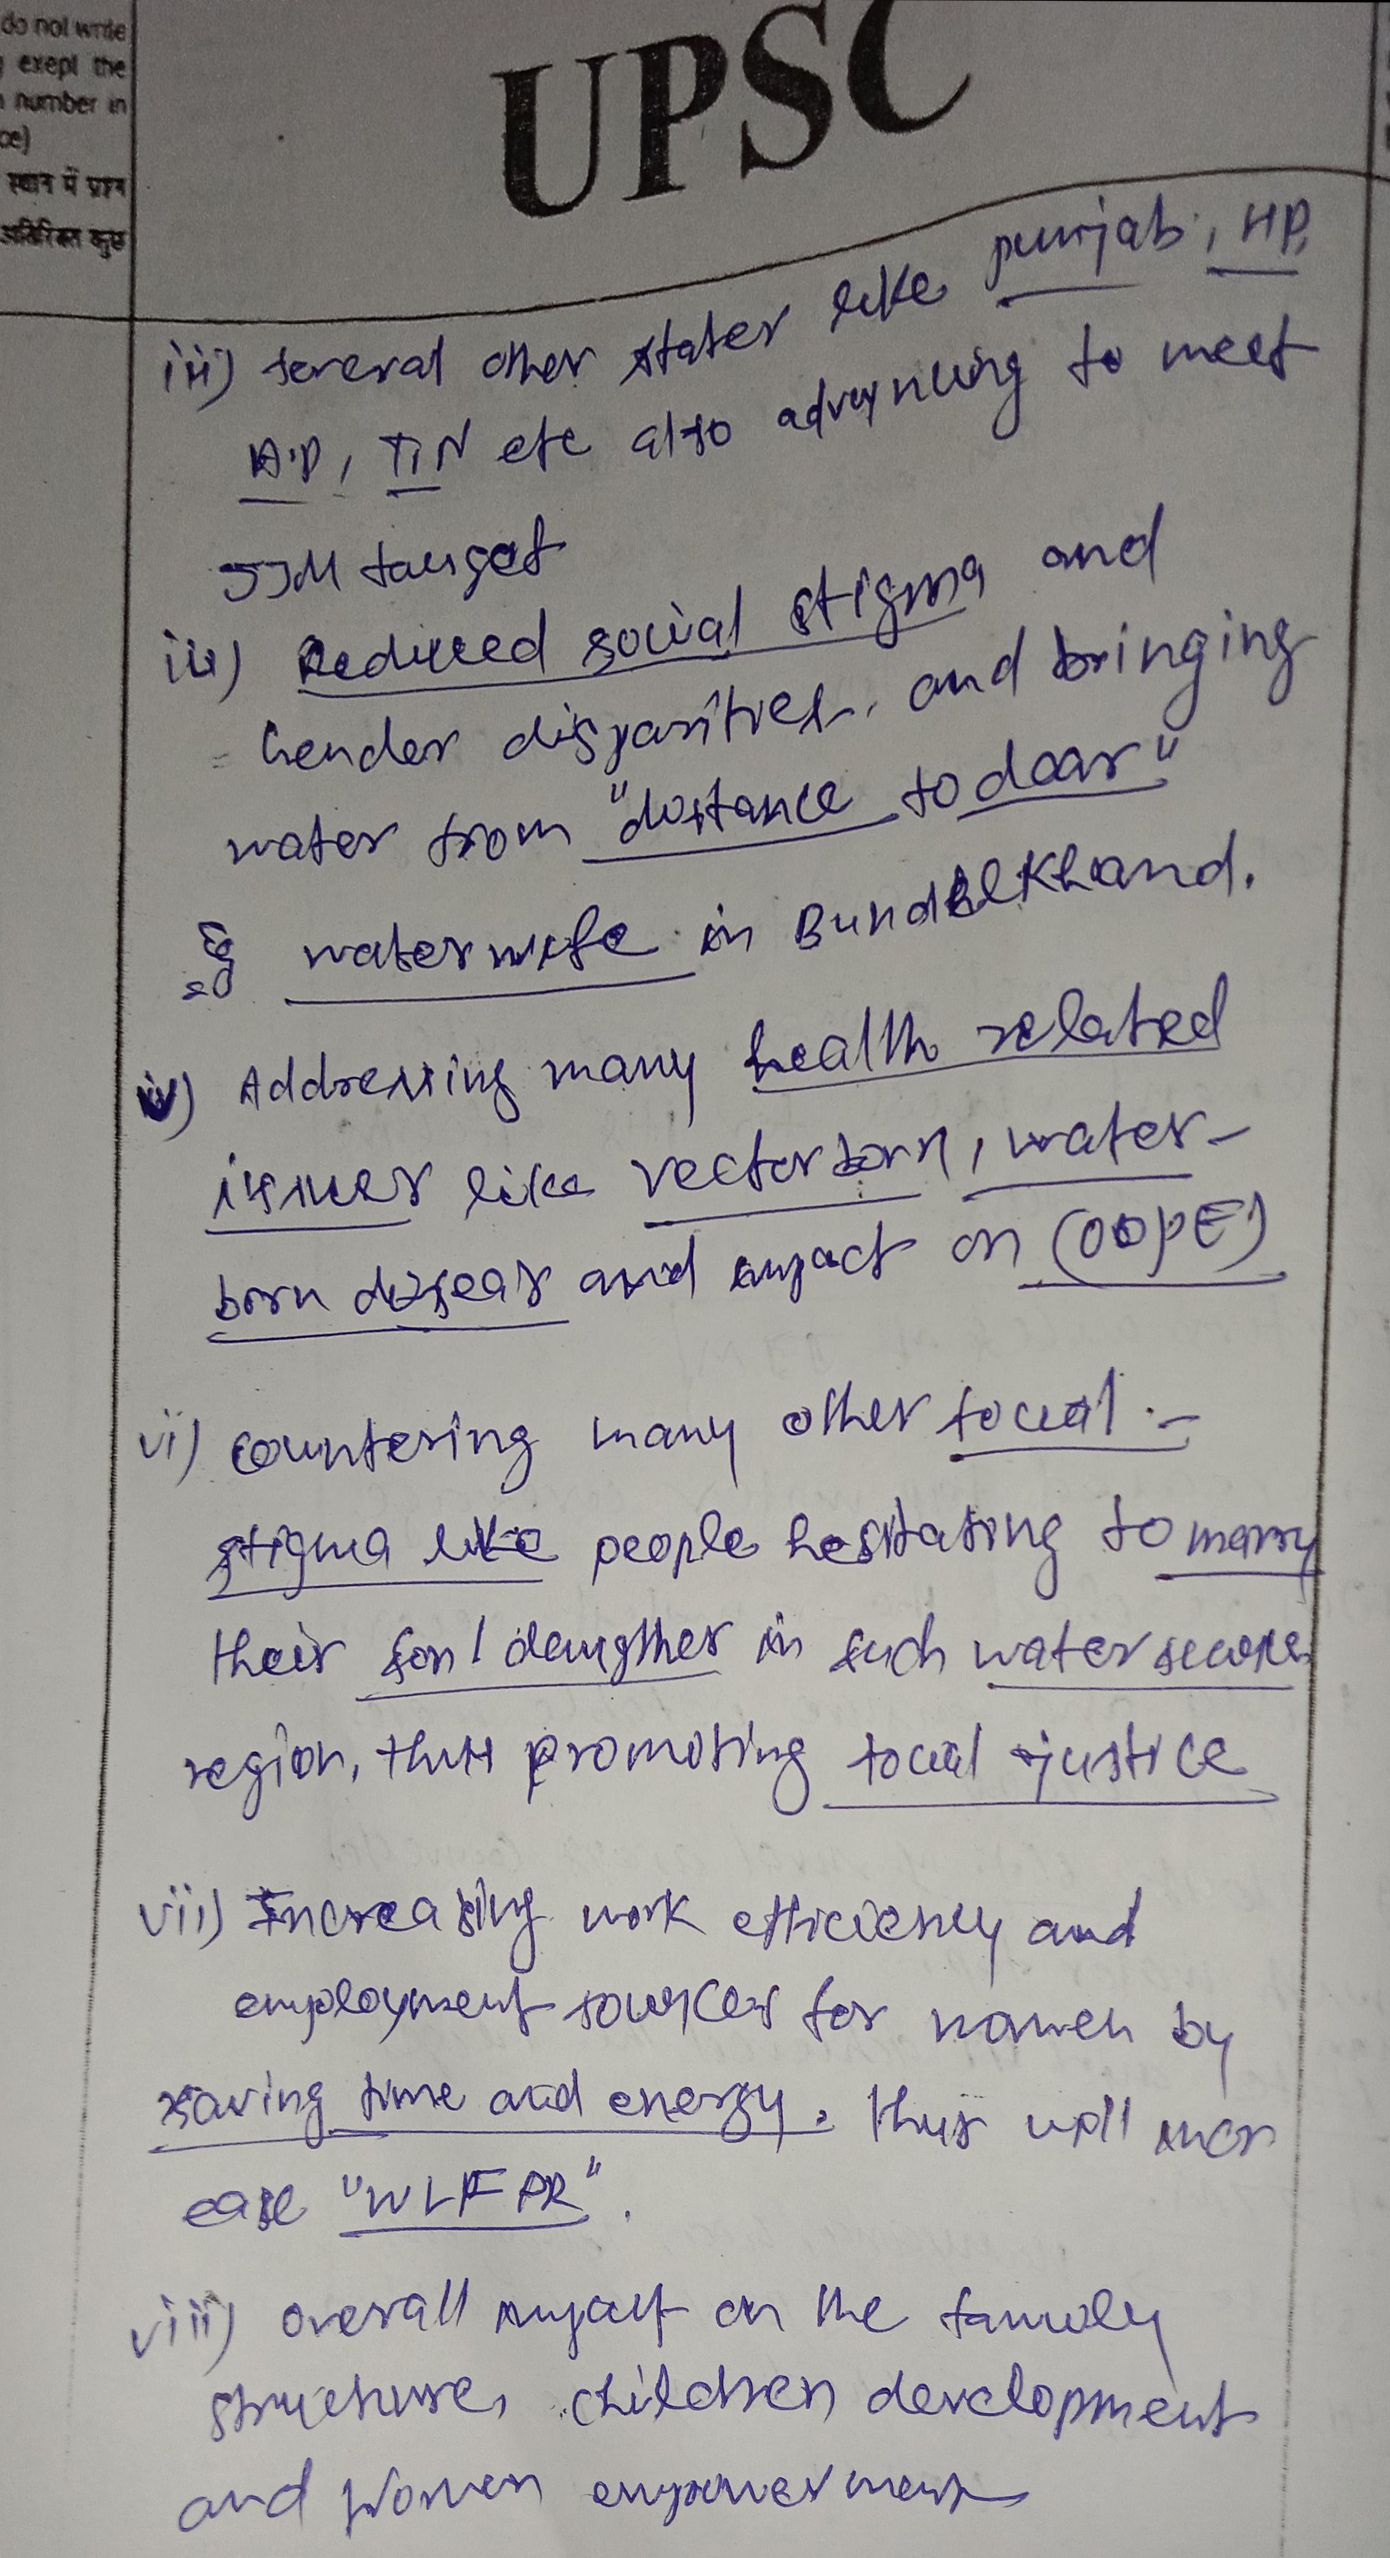 do not write
exept the
number in
ce)
स्थान में प्रश्न
अतिरिक्त कुछ
UPSC
iii) several other states like punjab, HP,
A.P, T.N etc also advancing to meet
JJM target
iv) Reduced social stigma and
Gender disparities, and bringing
water from "distance to door"
Eg water wife in Bundelkhand.
v) Addressing many health related
issues like vector born, water-
born diseas and impact on (OOPE)
vi) countering many other social -
stigma like people hesitating to marry
their son/daughter in such water scarce
region, thus promoting social justice
vii) Increasing work efficiency and
employment sources for women by
saving time and energy. this will incr
ease "WLFPR".
viii) overall impact on the family
structure, children development
and women empowerment